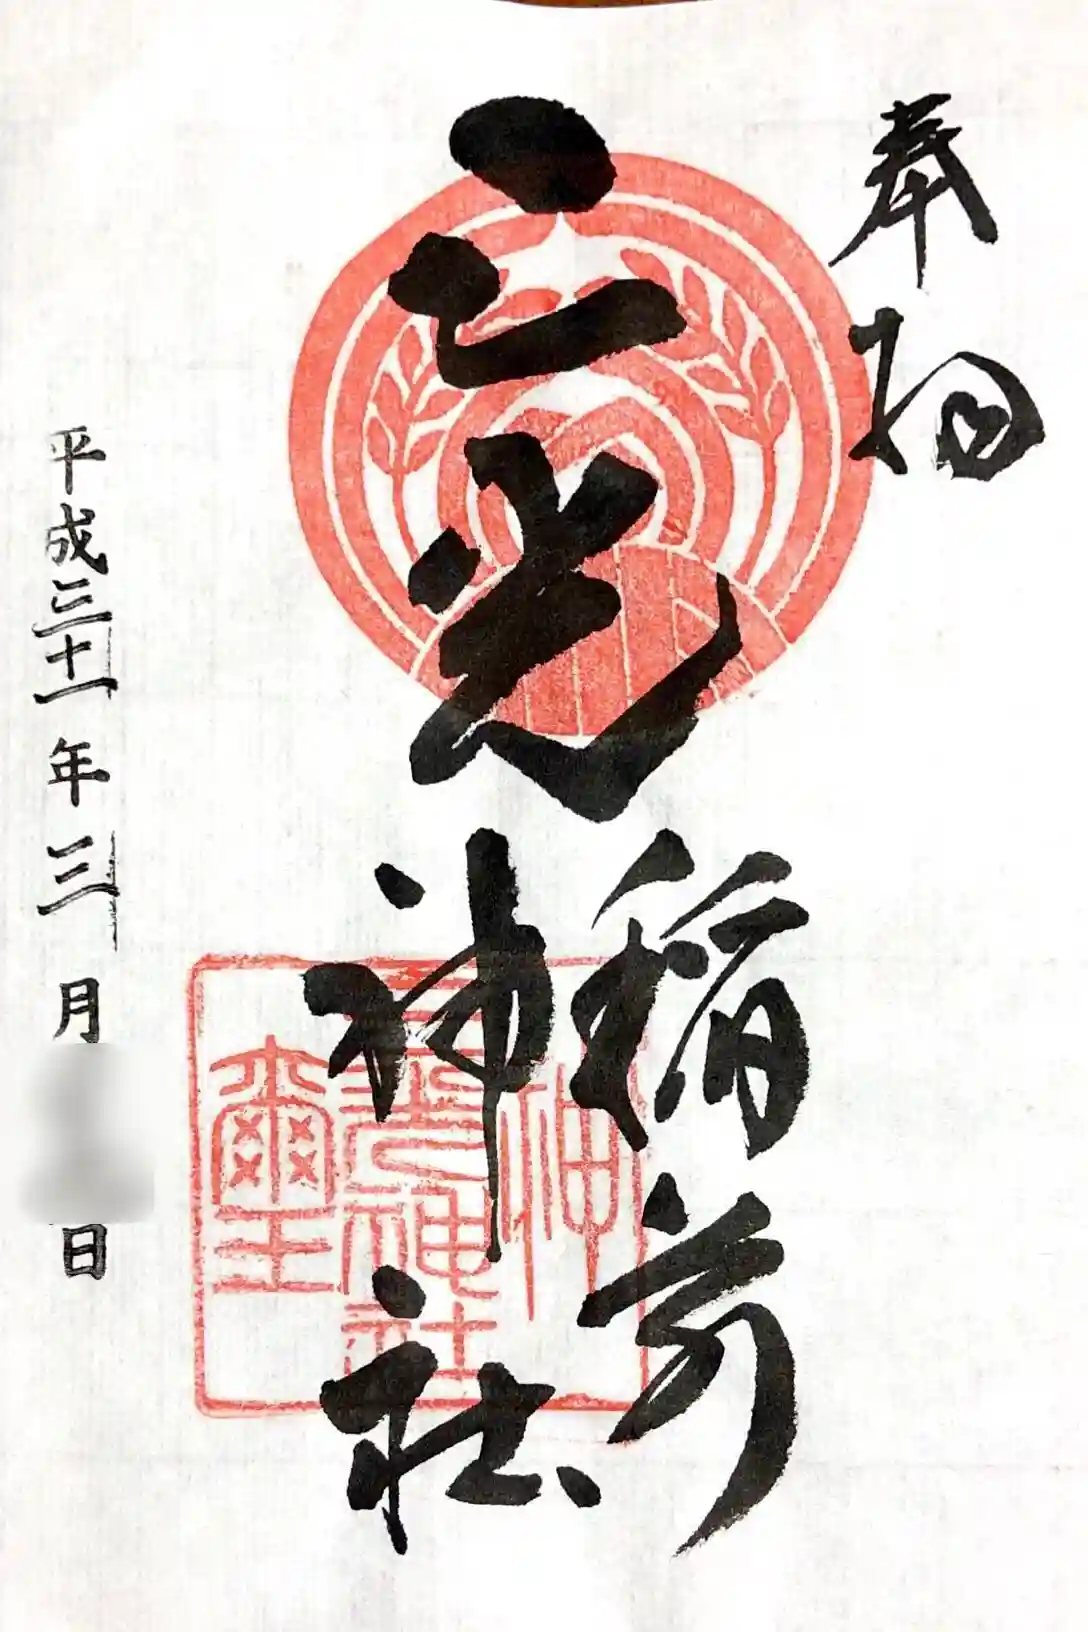 奉拝
三光
稲荷
神社
神
三光神社
璽
平成三十一年三月
日